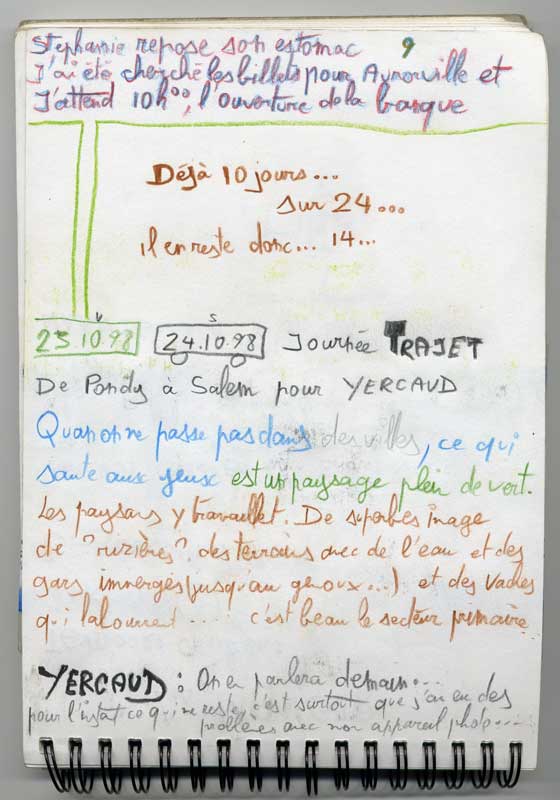 Stephanie repose son estomac 9
J'ai été cherché les billets pour Auroville et
J'attend 10h00, l'ouverture de la banque
Déjà 10 jours...
sur 24...
il en reste donc... 14...
V S
23.10.98 24.10.98 Journée TRAJET
De Pondy à Salem pour YERCAUD
Quand on ne passe pas dans des villes, ce qui
saute aux yeux est un paysage plein de vert.
Les paysans y travaillet. De superbes image
de "rizières". des terrains avec de l'eau et des
gars immergés (jusqu'au genoux...) et des vaches
qui labourent ..... c'est beau le secteur primaire
YERCAUD : On en parlera demain...
pour l'instat ce qui reste, c'est surtout que j'ai eu des
problères avec mon appareil photo...